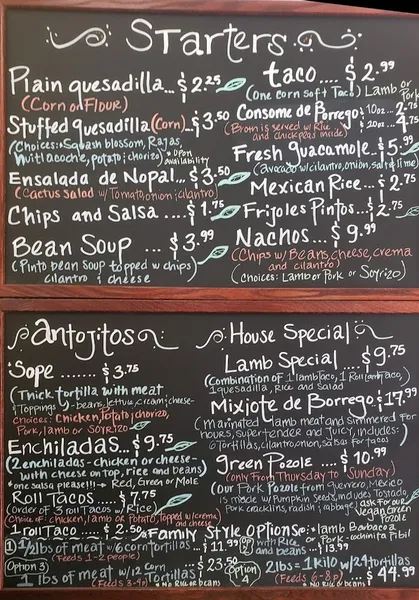 Starters
Plain quesadilla... $2.25
(Corn or Flour)
Stuffed quesadilla (Corn)... $3.50
(Choices: Squash blossom, Rajas,
huitlacoche, potato ; chorizo) * Upon availability
Ensalada de Nopal... $3.50
(Cactus salad w/ Tomato, onion ; cilantro)
Chips and Salsa .... $1.75
Bean Soup ... $3.99
(Pinto bean soup topped w/ chips)
cilantro ; cheese
taco.... $2.99
(One corn soft Taco) Lamb or Pork
Consome de Borrego 10oz ... 2.75
(Broth is served w/ Rice and chickpeas inside) 16oz ... 4.75
Fresh guacamole.. $5.99
(avocado w/ cilantro, onion, salt ; lime)
Mexican Rice ... $2.75
Frijoles Pintos... $2.75
Nachos.. $9.99
(Chips w/ Beans, cheese, crema
and cilantro)
(choices: Lamb or Pork or Soyrizo)
Antojitos
Sope ....... $3.75
(Thick tortilla with meat
; Toppings - beans, lettuce, cream ; cheese-
Choices: Chicken, Potato ; chorizo,
Pork, lamb or Soyrizo
Enchiladas... $9.75
(2 enchiladas - chicken or cheese-
with cheese on top, rice and beans)
one salsa please!!! → Red, Green or Mole
Roll Tacos .... $7.75
(Order of 3 roll Tacos w/ Rice)
Choice of: chicken, lamb or Potato, topped w/ crema and cheese
1 roll Taco ... $2.50
House Special
Lamb Special .... $9.75
(Combination of 1 lamb Taco, 1 Roll lamb Taco,
1 quesadilla, Rice and Salad
Mixiote de Borrego: $17.99
(Marinated lamb meat and simmered for
hours, super tender and juicy, includes:
6 Tortillas, cilantro, onion, salsa for tacos
green Pozole .... $10.99
(only from Thursday to Sunday)
(our Pork Pozole from Guerrero, Mexico
is made w/ Pumpkin Seeds, includes Tostada
Pork cracklins, radish ; cabbage)
ask for our
Vegan Green
Pozole
*Family Style Options: * lamb Barbacoa
or Pork - cochinita Pibil
1) 1/2 lbs of meat w/ 6 corn tortillas ... $11.99
(Feeds 1-2 people)
Op 2) with Rice
and beans ... $13.99
Option 3
1 lbs of meat w/ 12 corn Tortillas ... $23.50
(Feeds 3-4p) * No Rice or beans
Option 4
2 lbs = 1 Kilo w/ 24 tortillas
(Feeds 6-8p) ... $44.99
* No Rice or beans